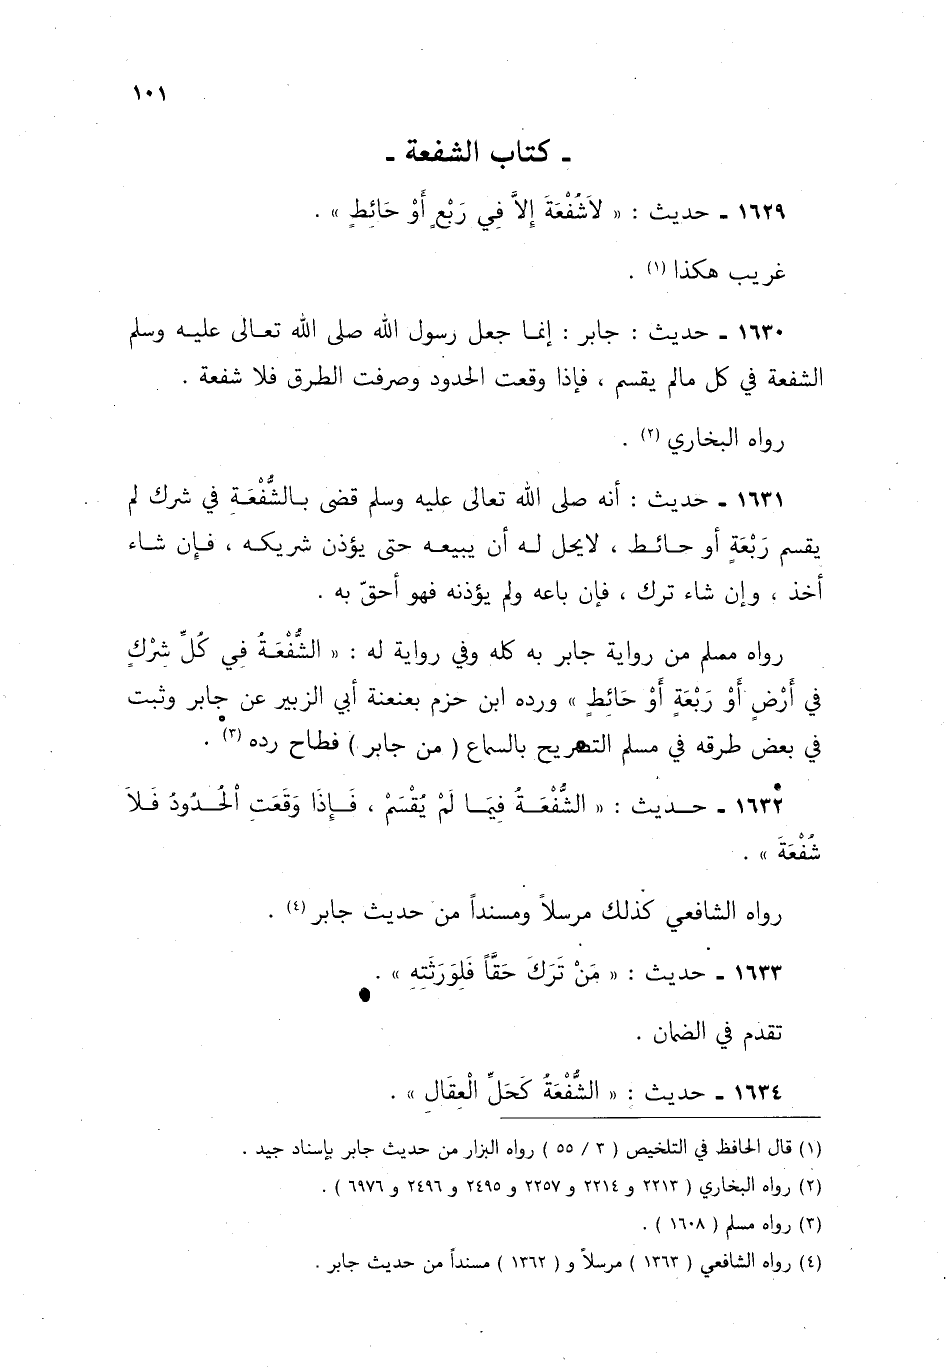 ١٠١
ـ كتاب الشفعة ـ
١٦٢٩ ـ حديث : « لاَشُفْعَةَ إِلاَّ فِي رَبْعٍ أَوْ حَائِطٍ » .
غريب هكذا (١) .
١٦٣٠ ـ حديث : جابر : إنما جعل رسول الله صلى الله تعالى عليه وسلم
الشفعة في كل مالم يقسم ، فإذا وقعت الحدود وصرفت الطرق فلا شفعة .
رواه البخاري (٢) .
١٦٣١ ـ حديث : أنه صلى الله تعالى عليه وسلم قضى بالشُّفْعَةِ في شرك لم
يقسم رَبْعَةٍ أو حائط ، لايحل له أن يبيعه حتى يؤذن شريكه ، فإن شاء
أخذ ، وإن شاء ترك ، فإن باعه ولم يؤذنه فهو أحقّ به .
رواه مسلم من رواية جابر به كله وفي رواية له : « الشُّفْعَةُ فِي كُلِّ شِرْكٍ
فِي أَرْضٍ أَوْ رَبْعَةٍ أَوْ حَائِطٍ » ورده ابن حزم بعنعنة أبي الزبير عن جابر وثبت
في بعض طرقه في مسلم التصريح بالسماع ( من جابر ) فطاح رده (٣) .
١٦٣٢ ـ حديث : « الشُّفْعَةُ فِيمَا لَمْ يُقْسَمْ ، فَإِذَا وَقَعَتِ الْحُدُودُ فَلاَ
شُفْعَةَ » .
رواه الشافعي كذلك مرسلاً ومسنداً من حديث جابر (٤) .
١٦٣٣ ـ حديث : « مَنْ تَرَكَ حَقَّاً فَلِوَرَثَتِهِ » .
تقدم في الضمان .
١٦٣٤ ـ حديث : « الشُّفْعَةُ كَحَلِّ الْعِقَالِ » .
(١) قال الحافظ في التلخيص ( ٣ / ٥٥ ) رواه البزار من حديث جابر بإسناد جيد .
(٢) رواه البخاري ( ٢٢١٣ و ٢٢١٤ و ٢٢٥٧ و ٢٤٩٥ و ٢٤٩٦ و ٦٩٧٦ ) .
(٣) رواه مسلم ( ١٦٠٨ ) .
(٤) رواه الشافعي ( ١٣٦٣ ) مرسلاً و ( ١٣٦٢ ) مسنداً من حديث جابر .